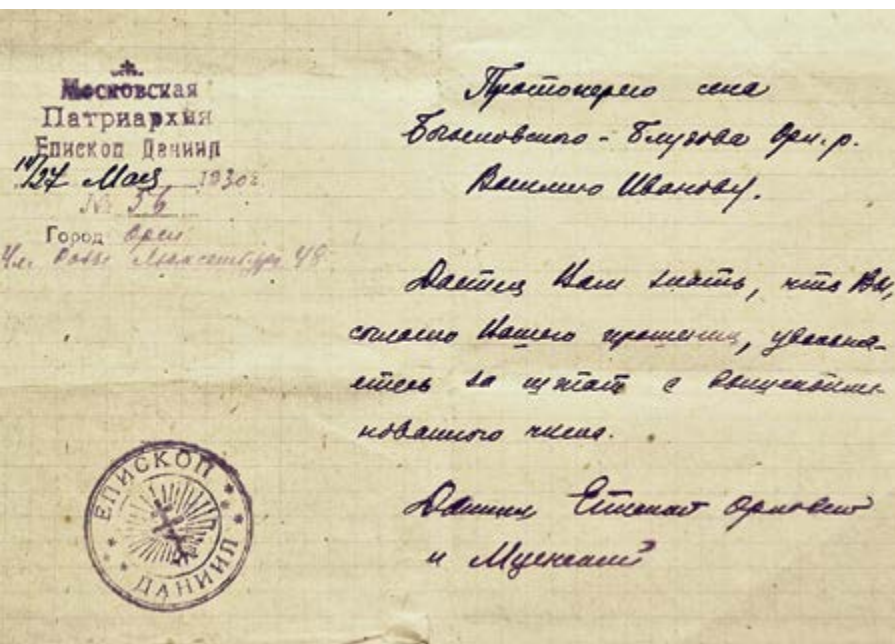 Московская
Патриархия
Епископ Даниил
14/27 Мая 1930 г
№ 56
Город Орел
Ул. Розы Люксембург 48
ЕПИСКОП
ДАНИИЛ
Протоиерею села
Орл. р.
Василию Иванову.
Дается Вам знать, что Вы,
согласно Вашего прошения, увольня-
етесь за штат с
нованного числа.
Даниил Епископ Орловский
и Мценский